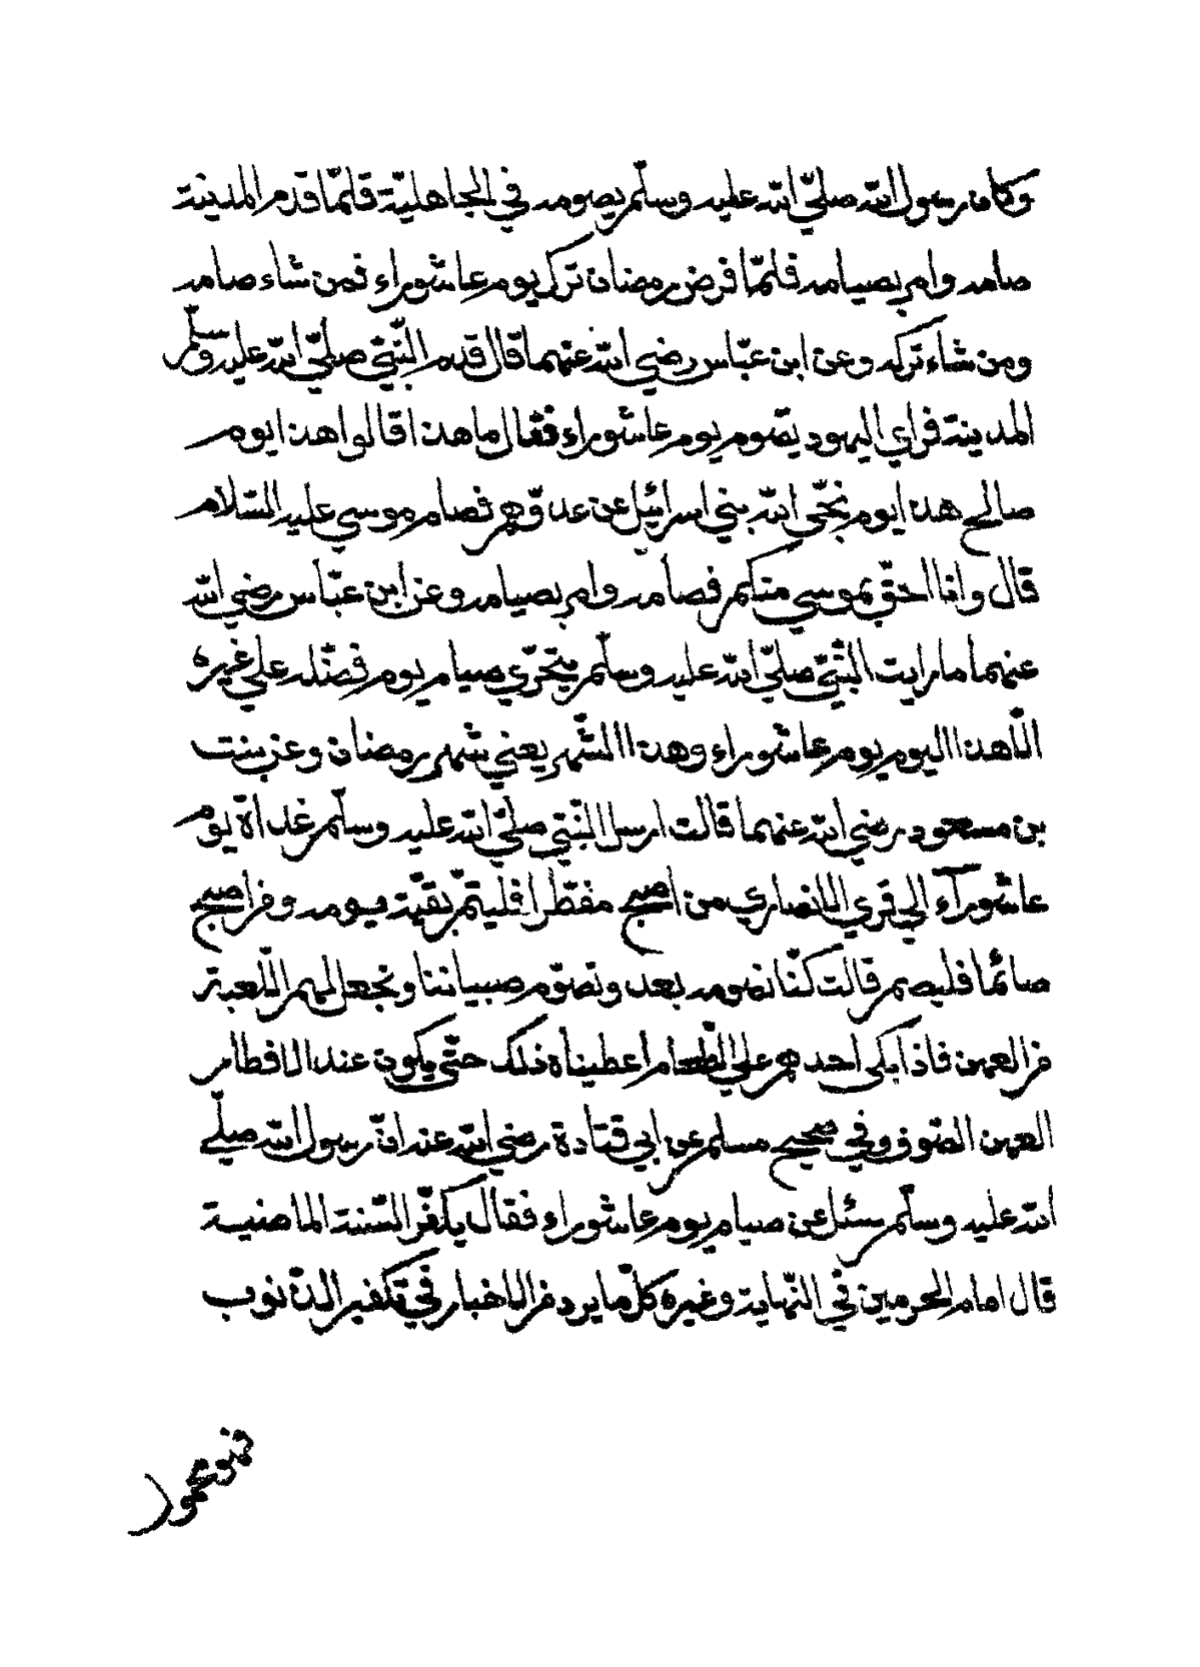 وكان رسول الله صلّي الله عليه وسلّم يصومه في الجاهليّة فلمّا قدم المدينة
صامه وامر بصيامه فلمّا فرض رمضان ترك يوم عاشوراء فمن شاء صامه
ومن شاء تركه وعن ابن عبّاس رضي الله عنهما قال قدم النّبيّ صلّي الله عليه وسلّم
المدينة فراي اليهود يصوم يوم عاشوراء فقال ما هذا قالوا هذا يوم
صالح هذا يوم نجّي الله بني اسرائيل عن عدوّهم فصام موسي عليه السّلام
قال وانا احقّ بموسي منكم فصامه وامر بصيامه وعن ابن عبّاس رضي الله
عنهما ما رايت النّبيّ صلّي الله عليه وسلّم يتحرّي صيام يوم فضّله علي غيره
الّا هذا اليوم يوم عاشوراء وهذا الشّهر يعني شهر رمضان وعن بنت
بن مسعود رضي الله عنهما قالت ارسل النّبيّ صلّي الله عليه وسلّم غداة يوم
عاشورآء الي قري الانصاري من اصبح مفطّرا فليتمّ بقيّة يومه ومن اصبح
صائما فليصم قالت كنّا نصومه بعد ونصوّم صبياننا ونجعل لهم اللّعبة
من العهن فاذا بكي احدهم علي الطّعام اعطيناه ذلك حتّي يكون عند الافطار
العهن الصّوف وفي صحيح مسلم عن ابي قتادة رضي الله عنه انّ رسول الله صلّي
الله عليه وسلّم سئل عن صيام يوم عاشوراء فقال يكفّر السّنة الماضية
قال امام الحرمين في النّهاية وغيره كلّ ما يرد من الاخبار في تكفير الذّنوب